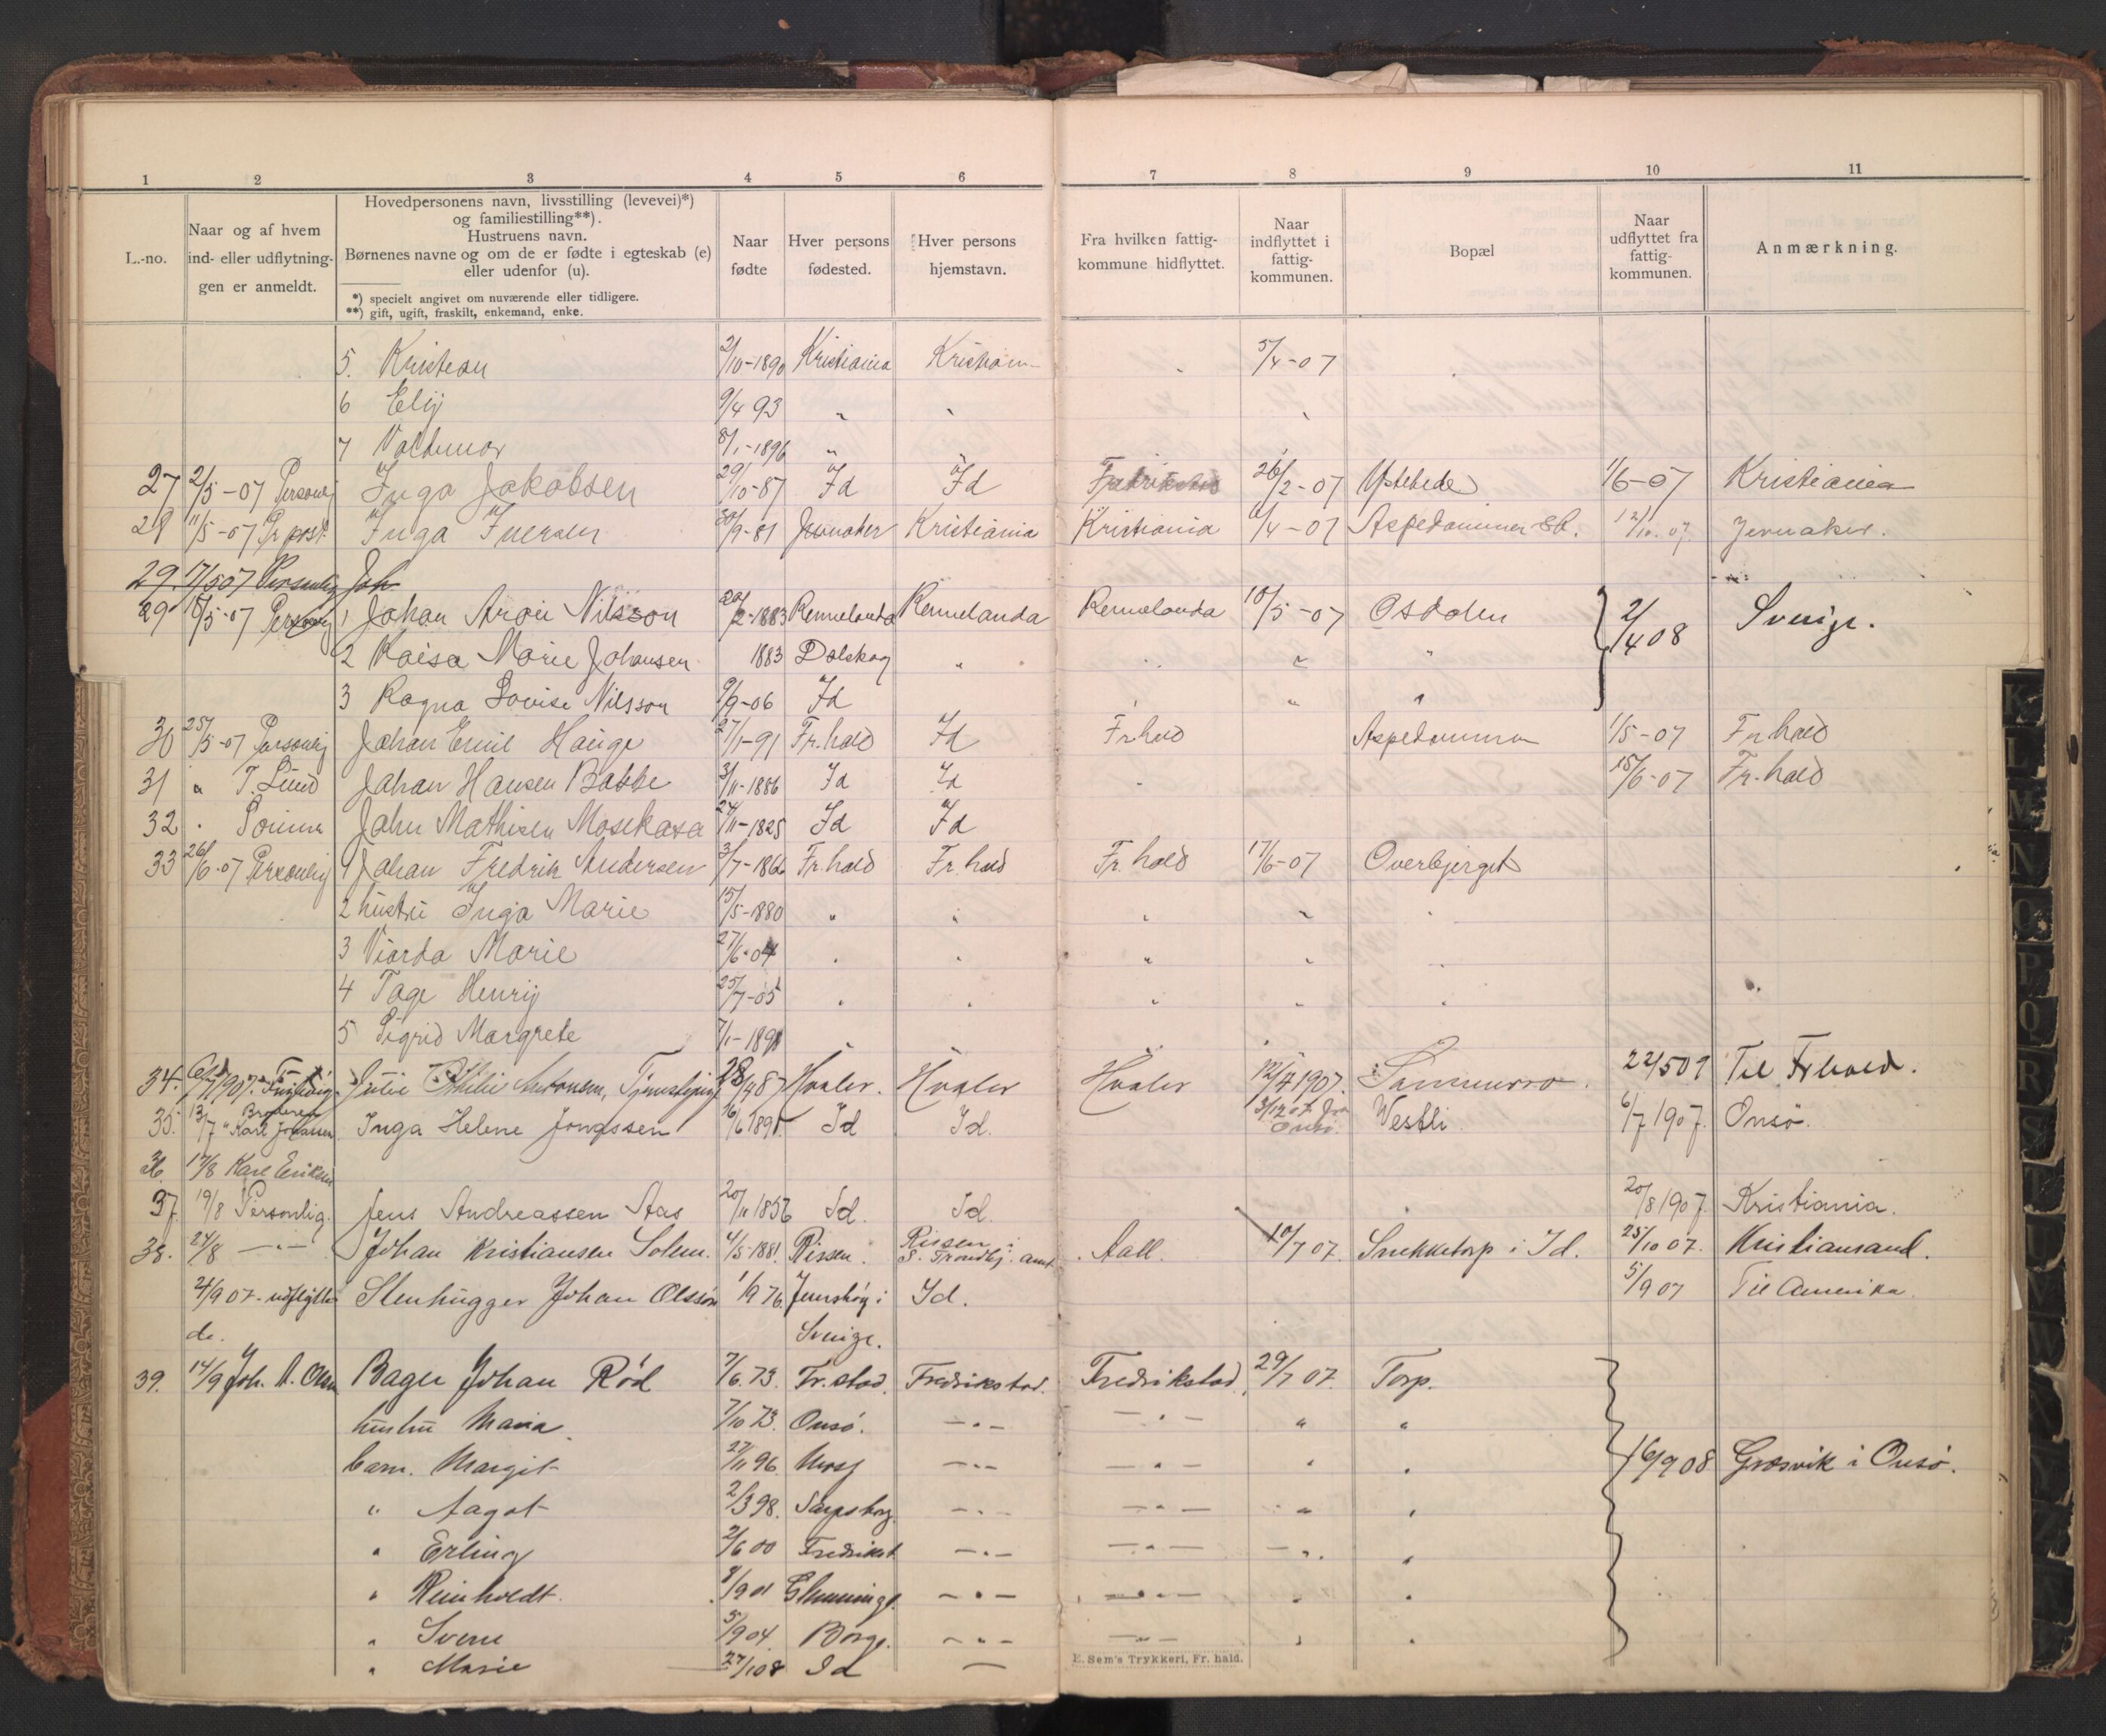 1 2 3 4 5 6 7 8 9 10 11
L.-no. Naar og af hvem ind- eller udflytningen er anmeldt. Hovedpersonens navn, livsstilling (levevei)*) og familiestilling**). Hustruens navn. Børnenes navne og om de er fødte i egteskab (e) eller udenfor (u). Naar fødte Hver persons fødested. Hver persons hjemstavn. Fra hvilken fattigkommune hidflyttet. Naar indflyttet i fattigkommunen. Bopæl Naar udflyttet fra fattigkommunen. Anmærkning.
*) specielt angivet om nuværende eller tidligere.
**) gift, ugift, fraskilt, enkemand, enke.
5. Kristian 2/10-1890 Kristiania 5/4-07
6 9/4 93 "
7 Valdemar 8/1-1896 "
27 2/5-07 Inga Jakobsen 29/10-87 Id Id Fredrikstad 26/2-07 1/6-07 Kristiania
28 11/5-07 Inga Iversen 30/9-81 Jevnaker Kristiania Kristiania /4-07 Aspedammen St. 12/10.07 Jevnaker.
29. 17/507 Personlig Joh
29 /5-07 1 Johan Nilsson 20/2-1883 Rennelanda Rennelanda Rennelanda 10/5-07 Osdolen 2/4 08 Sverige.
2 Kaisa Marie Johansen 1883 Dalskog " " " "
3 Ragna Lovise Nilsson 9/9-06 Id " "
30 25/5-07 Personlig Johan Emil Hauge 27/1-91 Fr.hald Id Fr.hald Aspedammen 1/5-07 Fr.hald
31 " T. Lund Johan Hansen Babbe 3/11-1886 Id Id 15/6-07 Fr.hald
32 John Mathisen Mosekasa 24/11-1825 Id Id
33 26/6-07 Personlig 1 Johan Fredrik Andersen 3/7-1866 Fr.hald Fr.hald Fr.hald 17/6-07 Overbjerget
2 hustru Inga Marie 15/5-1880 " " " " "
3 Viarda Marie 27/6-04 " " " " "
4 Tage Henrij 25/7-05 " " " " "
5 Sigrid Margrete 7/1-1891 "
34. Julie Antonsen, Tjenestepige 28/4 87 Hvaler. Hvaler Hvaler 12/4 1907. 22/509 Til Frhald.
35. 13/7 " Broderen Karl Jonassen Inga Helene Jonassen 16/6 1895. Id Id. 3/12 07 fra Onsø. Vestli 6/7 1907. Onsø.
36. 17/8 Karl Eriksen
37. 19/8 Personlig. Jens Andreassen Aas 20/11 1856 Id. Id. 20/8 1907. Kristiania.
38. 24/8 — " — Johan Kristiansen Solem. 4/5-1881. Rissen. Rissen i S. Trondhj. amt. Aall. 10/7 07. Snekketorp i Id. 25/10 07. Kristiansand.
4/9 07 - udflyttede. Stenhugger Johan Olsson 1/9 76. i Sverige. Id. 5/9 07 Til Amerika.
39. 14/9 Joh. A. Olsen Bager Johan Rød 7/6 73. Fr.stad. Fredrikstad. Fredrikstad. 29/7 07. Torp.
hustru Maria 7/10 73. Onsø. — " — — " — " "
barn. Margit 27/11 96. Moss — " — — " — " " 16/9 08 Græsvik i Onsø.
" Aagot 2/3 98. Sarpsborg. — " — — " — " "
" Erling 2/6 00 Fredrikst. — " — — " — — " "
" Reinholdt. 8/9 01 Glemminge. — " — — " — " "
" Sverre 5/9 04. Borge. — " — — " — " "
" Marie 27/1 08 Id —
E. Sem's Trykkeri, Fr.hald.
K L M N O P Q R S T U V W